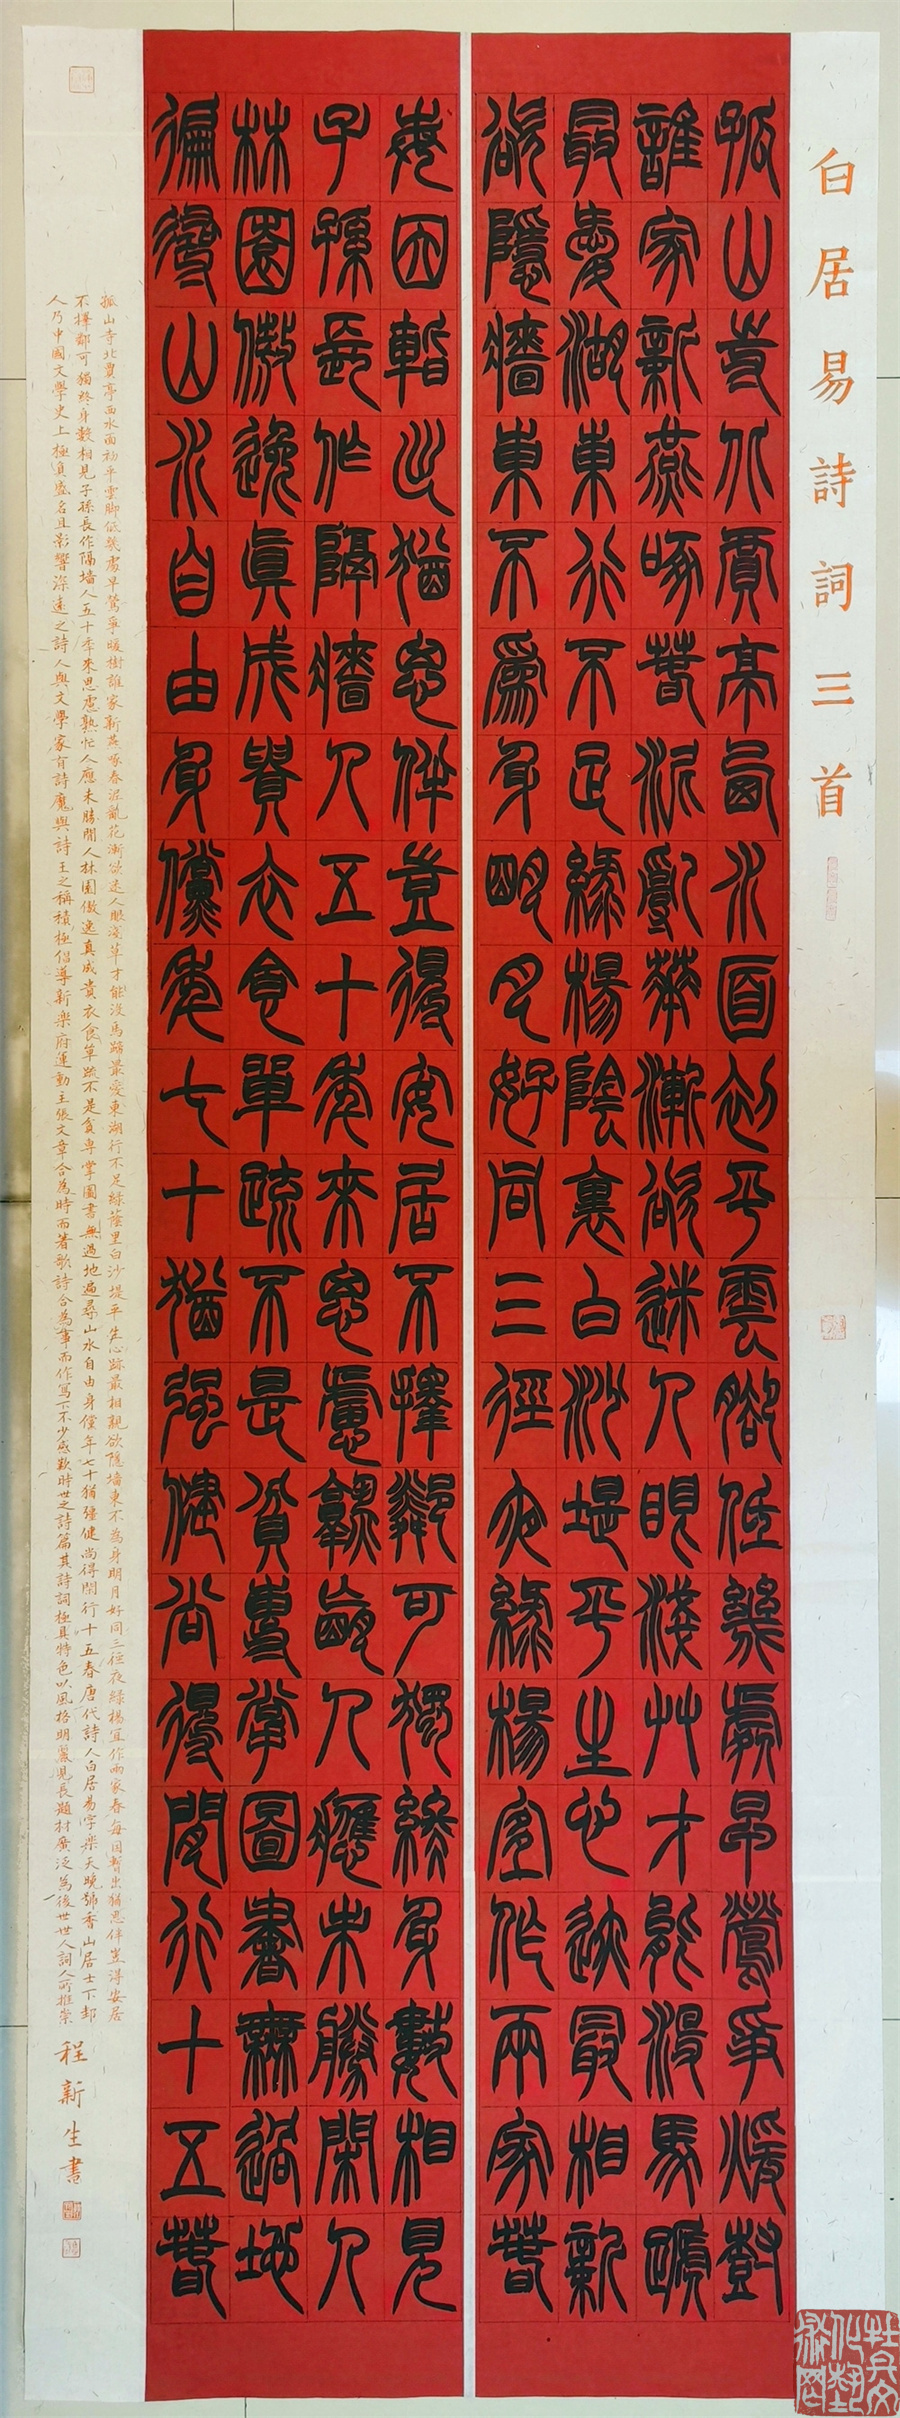 白居易詩詞三首
孤山寺北賈亭西水面初平雲腳低幾處早鶯爭暖樹
誰家新燕啄春泥亂華漸欲迷人眼淺艸才能沒馬蹄
最愛湖東行不足綠楊陰裏白沙堤平生心跡最相親
欲隱牆東不為身明月好同三徑夜綠楊宜作兩家春
每因暫出猶思伴豈得安居不擇鄰可獨終身數相見
子孫長作隔牆人五十年來思慮熟忙人應未勝閑人
林園傲逸真成貴衣食單疏不是貧專掌圖書無過地
徧尋山水自由身儻年七十猶強健尚得閒行十五春
孤山寺北賈亭西水面初平雲脚低幾處早鶯爭暖樹誰家新燕啄春泥亂花漸欲迷人眼淺草才能沒馬蹄最愛東湖行不足綠蔭里白沙堤平生心跡最相親欲隱墻東不為身明月好同三徑夜綠楊宜作兩家春每因暫出猶思伴豈得安居
不擇鄰可獨終身數相見子孫長作隔墻人五十年來思慮熟忙人應未勝閒人林園傲逸真成貴衣食單疏不是貧專掌圖書無過地遍尋山水自由身儻年七十猶彊健尚得閑行十五春唐代詩人白居易字樂天晚號香山居士下邽
人乃中國文學史上極負盛名且影響深遠之詩人與文學家有詩魔與詩王之稱積極倡導新樂府運動主張文章合為時而著歌詩合為事而作寫下不少感歎時世之詩篇其詩詞極具特色以風格明麗見長題材廣泛為後世世人詞人所推崇
程新生書